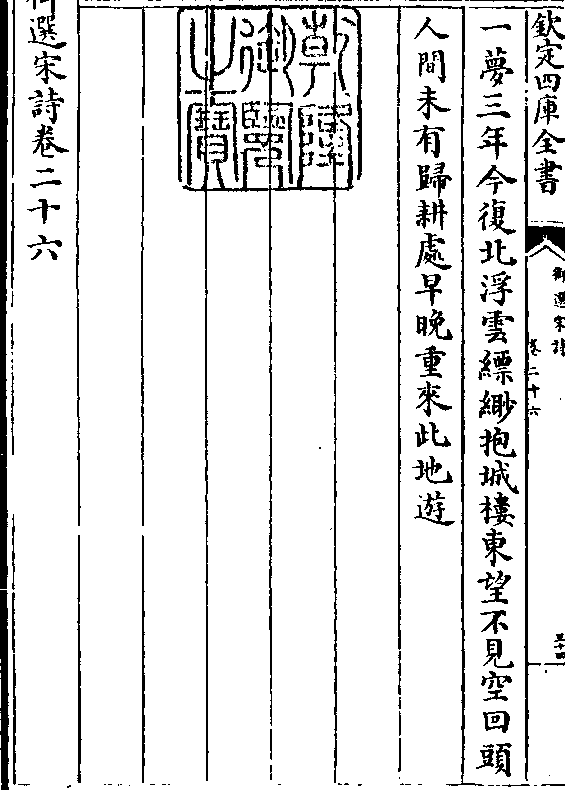 欽定四庫全書
御選宋詩
卷二十六
三十四
一夢三年今復北浮雲縹緲抱城樓東望不見空回頭
人間未有歸耕處早晚重來此地遊
乾隆御覽之寶
御選宋詩卷二十六